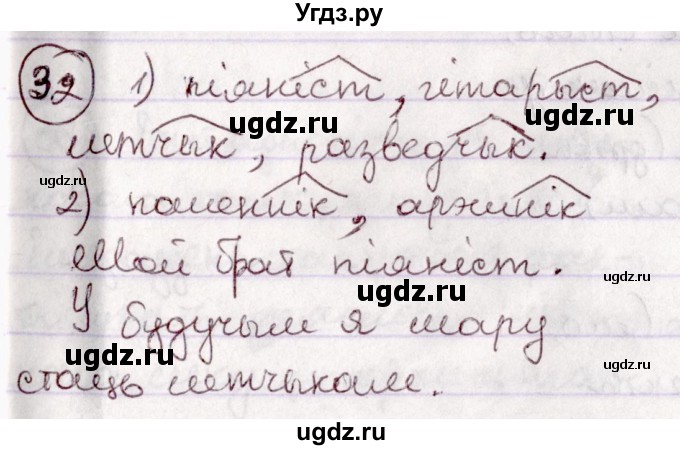 Угдз.ру
32 1) піяніст, гітарыст,
лётчык, разведчык.
2) паленнік, аржанік
Мой брат піяніст.
У будучым я мару
стаць лётчыкам.
ugdz.ru
ugdz.ru
ugdz.ru
ugdz.ru
ugdz.ru
ugdz.ru
ugdz.ru
ugdz.ru
ugdz.ru
ugdz.ru
ugdz.ru